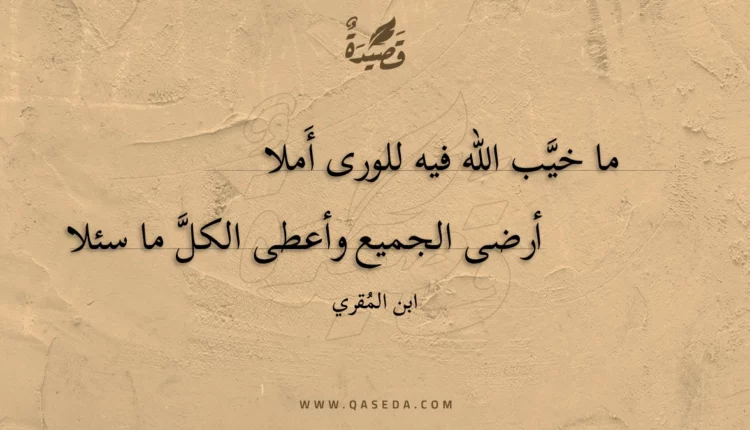 قَصِيدَةٌ
ما خيَّب الله فيه للورى أَملا
أرضى الجميع وأعطى الكلَّ ما سئلا
ابن المُقري
WWW.QASEDA.COM